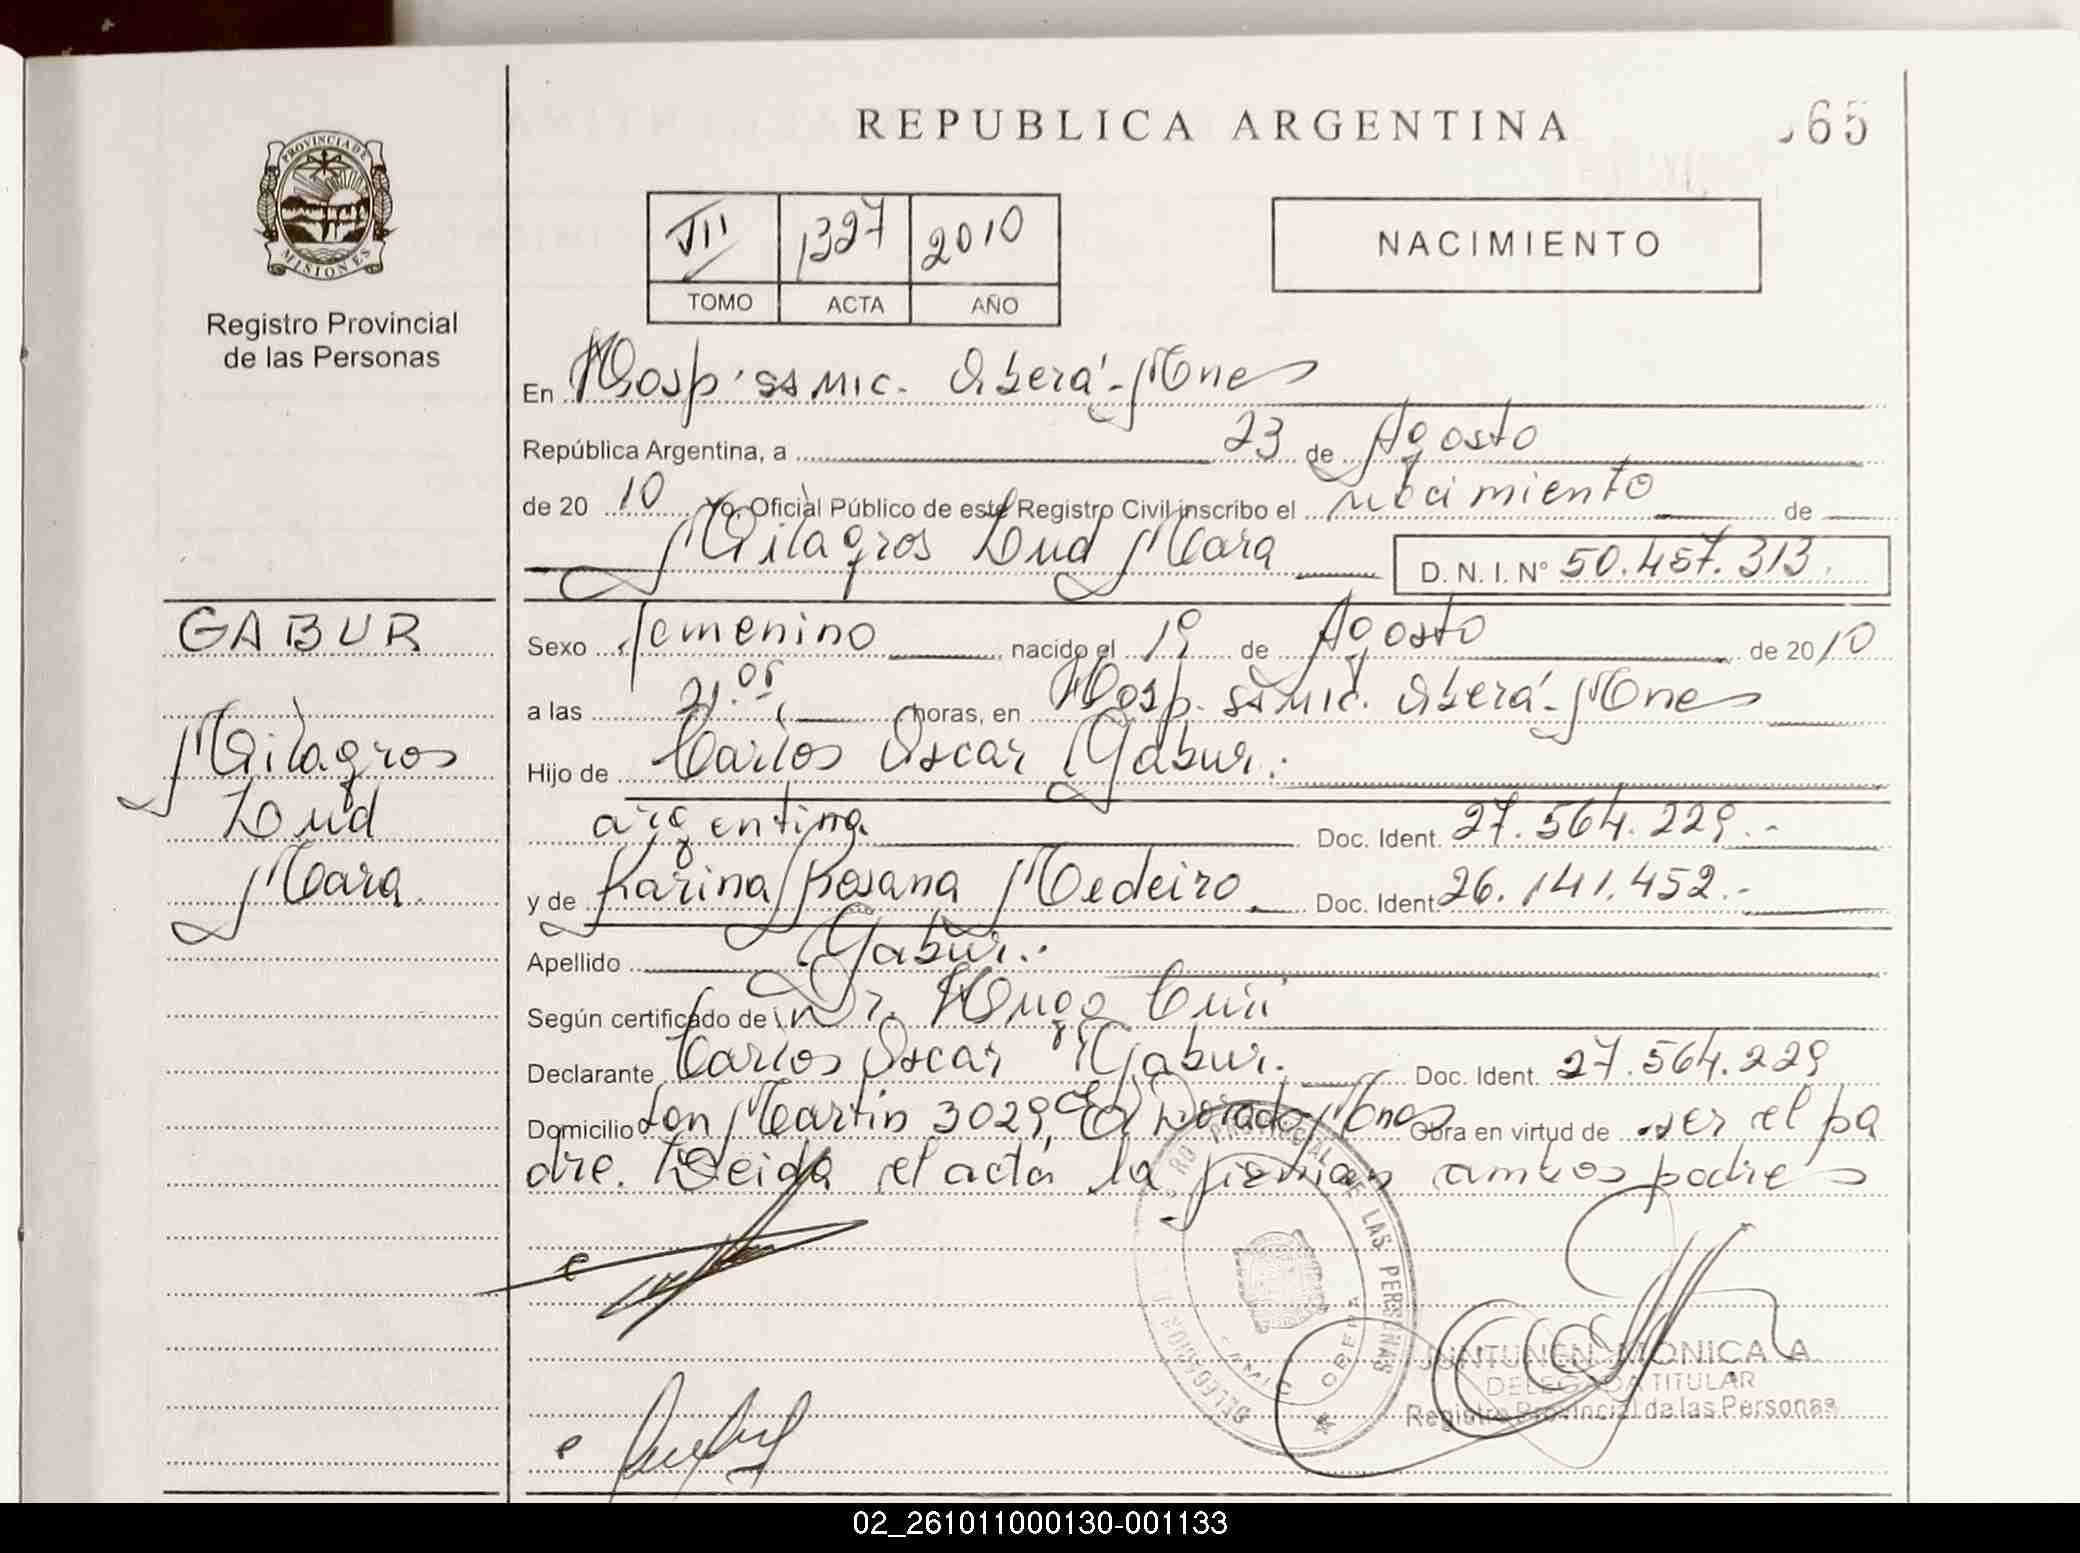 REPUBLICA ARGENTINA
65
PROVINCIA DE
MISIONES
Registro Provincial
de las Personas
VII 1327 2010
TOMO ACTA AÑO
NACIMIENTO
En Hosp. SAMIC. Oberá-Mnes
República Argentina, a 23 de Agosto
de 20 10 Yo, Oficial Público de este Registro Civil inscribo el nacimiento de
Milagros Lud Mara D. N. I. N° 50.457.313.
GABUR
Milagros
Lud
Mara.
Sexo femenino nacido el 19 de Agosto de 2010
a las 21.05 horas, en Hosp. SAMIC. Oberá-Mnes
Hijo de Carlos Oscar Gabur.
argentina Doc. Ident. 27.564.229.-
y de Karina Rosana Medeiro Doc. Ident. 26.141.452.-
Apellido Gabur.
Según certificado de Dr. Hugo
Declarante Carlos Oscar Gabur. Doc. Ident. 27.564.229
Domicilio San Martin 3029, El Dorado Mnes Obra en virtud de ser el pa
dre. Leida el acta la firman ambos padres
PROVINCIAL DE LAS PERSONAS
OBERA
JUNTUNEN MONICA A
DELEGADA TITULAR
Registro Provincial de las Personas
02_261011000130-001133